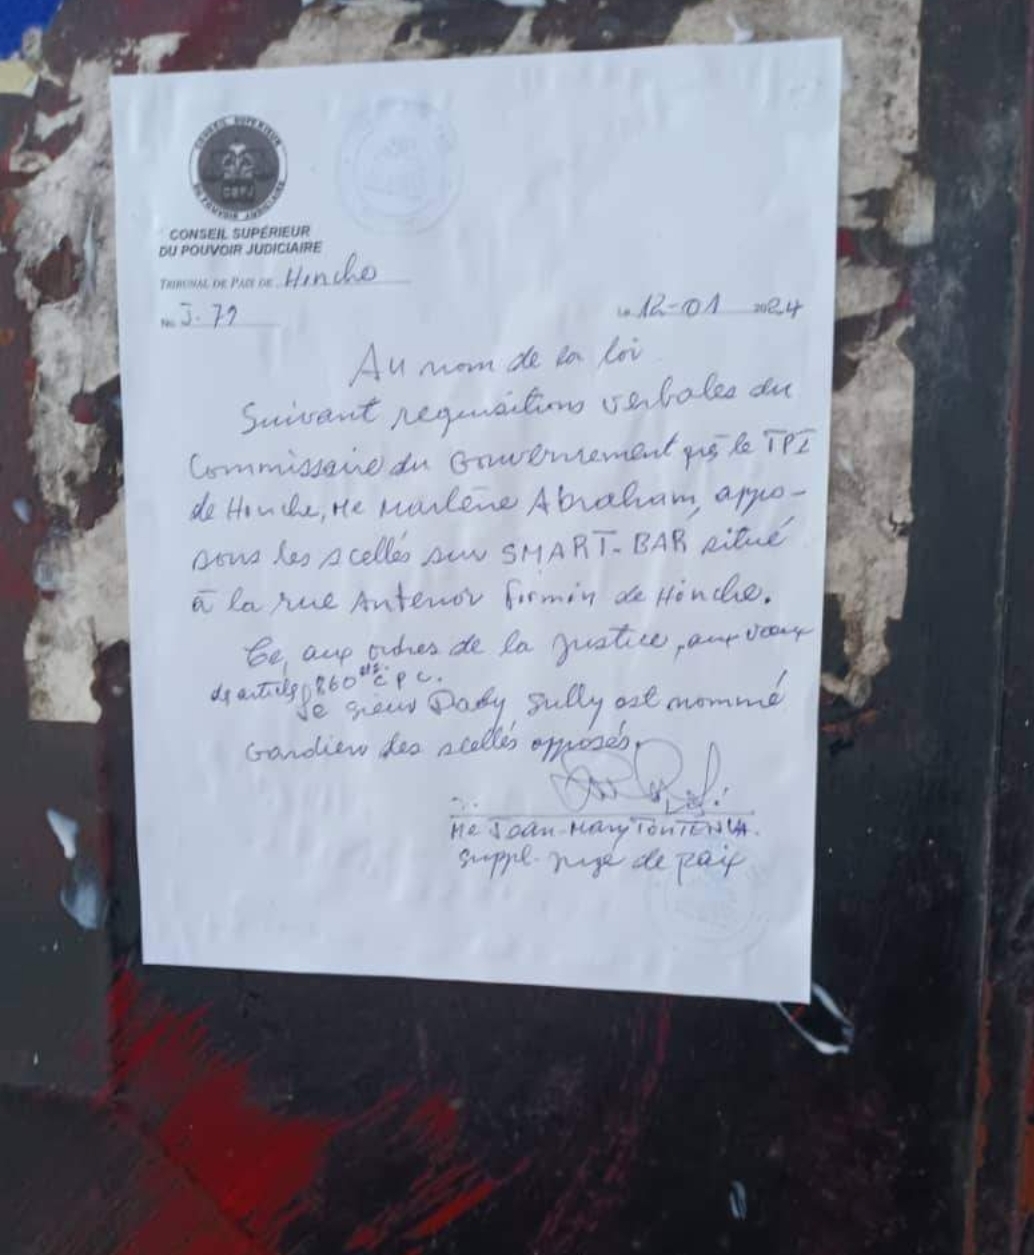 CONSEIL SUPERIEUR
DU POUVOIR JUDICIAIRE
CSPJ
CONSEIL SUPÉRIEUR
DU POUVOIR JUDICIAIRE
TRIBUNAL DE PAIX DE Hinche
No J-79
Le 12-01 2024
Au nom de la loi
Suivant requisitions verbales du
Commissaire du Gouvernement près le TPI
de Hinche, Me Marlène Abraham, appo-
sons les scellés sur SMART-BAR situé
à la rue Antenor Firmin de Hinche.
Ce, aux ordres de la justice, aux vœux
de articles 860 C P C.
le sieur Dady Sully est nommé
Gardien des scellés apposés.
Me Jean-Mary
Suppl. juge de paix